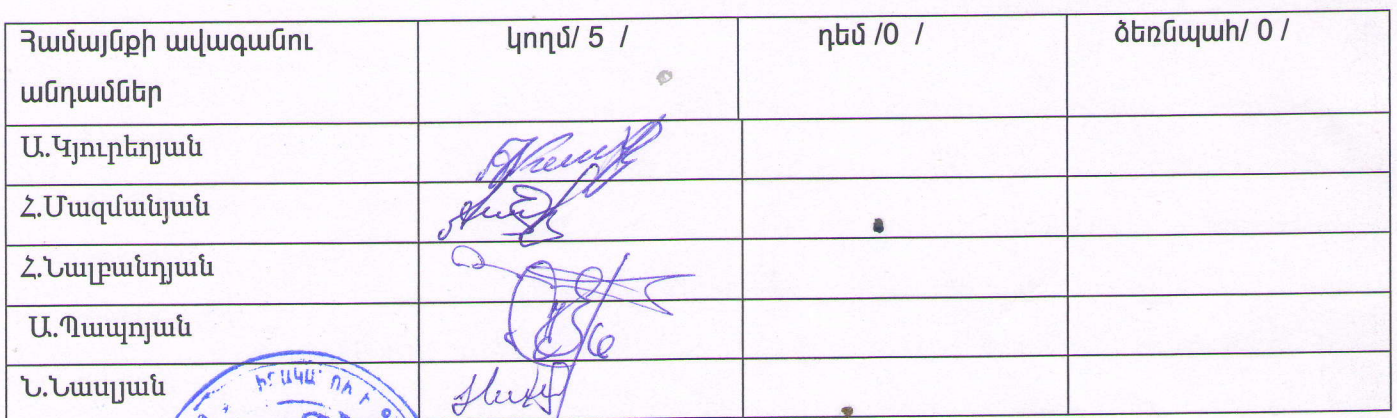 Համայնքի ավագանու կողմ/ 5 / դեմ /0 / ձեռնպահ/ 0 /
անդամներ
Ա.Կյուրեղյան
Հ.Մազմանյան
Հ.Նալբանդյան
Ա.Պապոյան
Ն.Նասլյան